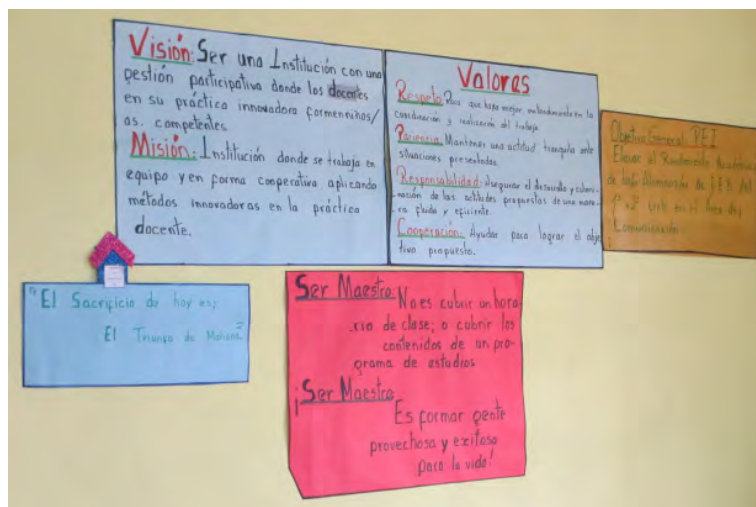 Visión: Ser una Institución con una
gestión participativa donde los docentes
en su práctica innovadora formen niños/
as. competentes.
Misión: Institución donde se trabaja en
equipo y en forma cooperativa aplicando
métodos innovadoras en la práctica
docente.
Valores
Respeto: Para que haya mejor entendimiento en la
coordinación y realización del trabajo
Paciencia: Mantener una actitud tranquila ante
situaciones presentadas.
Responsabilidad: Asegurar el desarrollo y culmi-
nación de las actitudes propuestas de una mane-
ra fluida y eficiente.
Cooperación: Ayudar para lograr el obje
tivo propuesto.
Objetivo General: PEI
Elevar el Rendimiento Académico
de los Alumnos de E.E.B. del
en el Área de
Comunicación.
"El Sacrificio de hoy es;
El Triunfo de Mañana"
Ser Maestro
No es cubrir un hora
rio de clase; o cubrir los
contenidos de un pro-
grama de estudios
¡Ser Maestro
Es formar gente
provechosa y exitosa
para la vida!